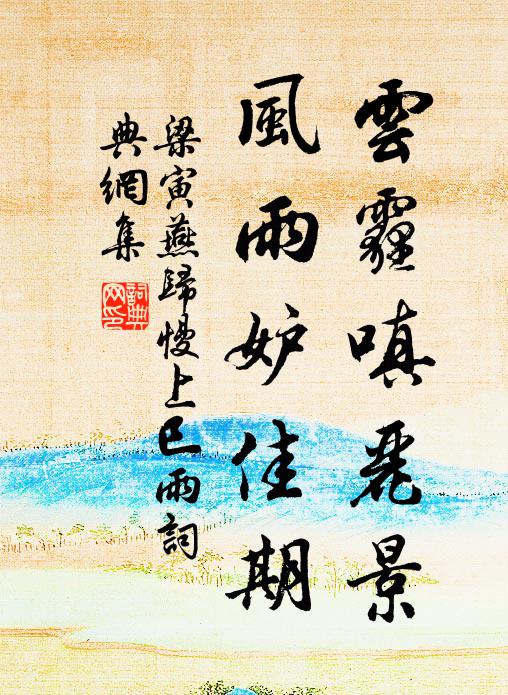 雲霾嗔麗景
風雨妒佳期
梁寅燕歸慢上巳雨詞
典網集
詞典
网印